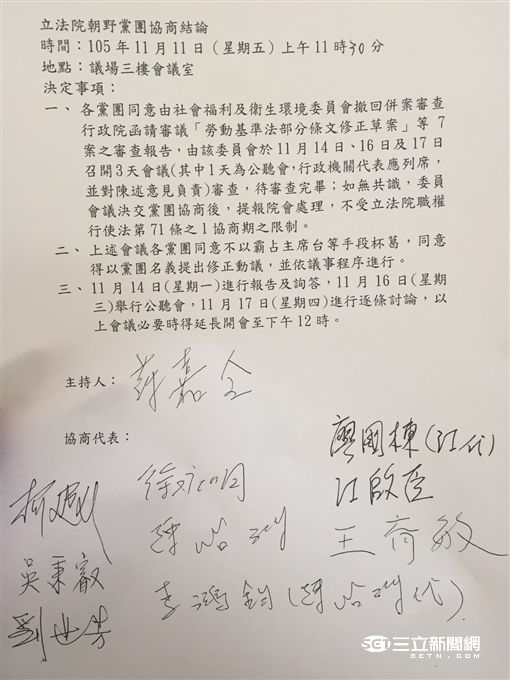 立法院朝野黨團協商結論
時間：105年11月11日（星期五）上午11時30分
地點：議場三樓會議室
決定事項：
一、各黨團同意由社會福利及衛生環境委員會撤回併案審查
行政院函請審議「勞動基準法部分條文修正草案」等7
案之審查報告，由該委員會於11月14日、16日及17日
召開3天會議(其中1天為公聽會，行政機關代表應列席，
並對陳述意見負責)審查，待審查完畢；如無共識，委員
會議決交黨團協商後，提報院會處理，不受立法院職權
行使法第71條之1協商期之限制。
二、上述會議各黨團同意不以霸占主席台等手段杯葛，同意
得以黨團名義提出修正動議，並依議事程序進行。
三、11月14日(星期一)進行報告及詢答，11月16日(星期
三)舉行公聽會，11月17日(星期四)進行逐條討論，以
上會議必要時得延長開會至下午12時。
主持人：蘇嘉全
協商代表：
廖國棟(江代)
徐永明
江啟臣
柯建銘
陳怡潔
王育敏
吳秉叡
李鴻鈞(陳怡潔代)
劉世芳
SET 三立新聞網
SETN.COM